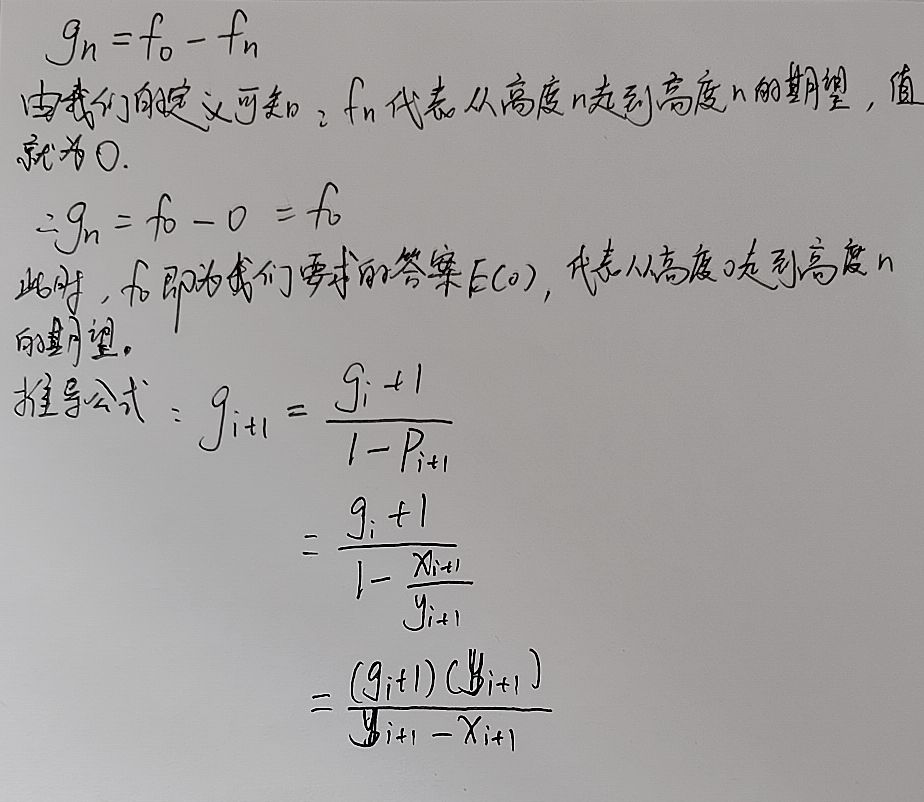 gₙ = f₀ - fₙ
由我们的定义可知：fₙ 代表从高度n走到高度n的期望，值
就为0.
∴gₙ = f₀ - 0 = f₀
此时，f₀即为我们要求的答案E(0)，代表从高度0走到高度n
的期望。
推导公式：gᵢ₊₁ = \frac{gᵢ+1}{1-Pᵢ₊₁}
= \frac{gᵢ+1}{1-\frac{xᵢ₊₁}{yᵢ₊₁}}
= \frac{(gᵢ+1)(yᵢ₊₁)}{yᵢ₊₁-xᵢ₊₁}